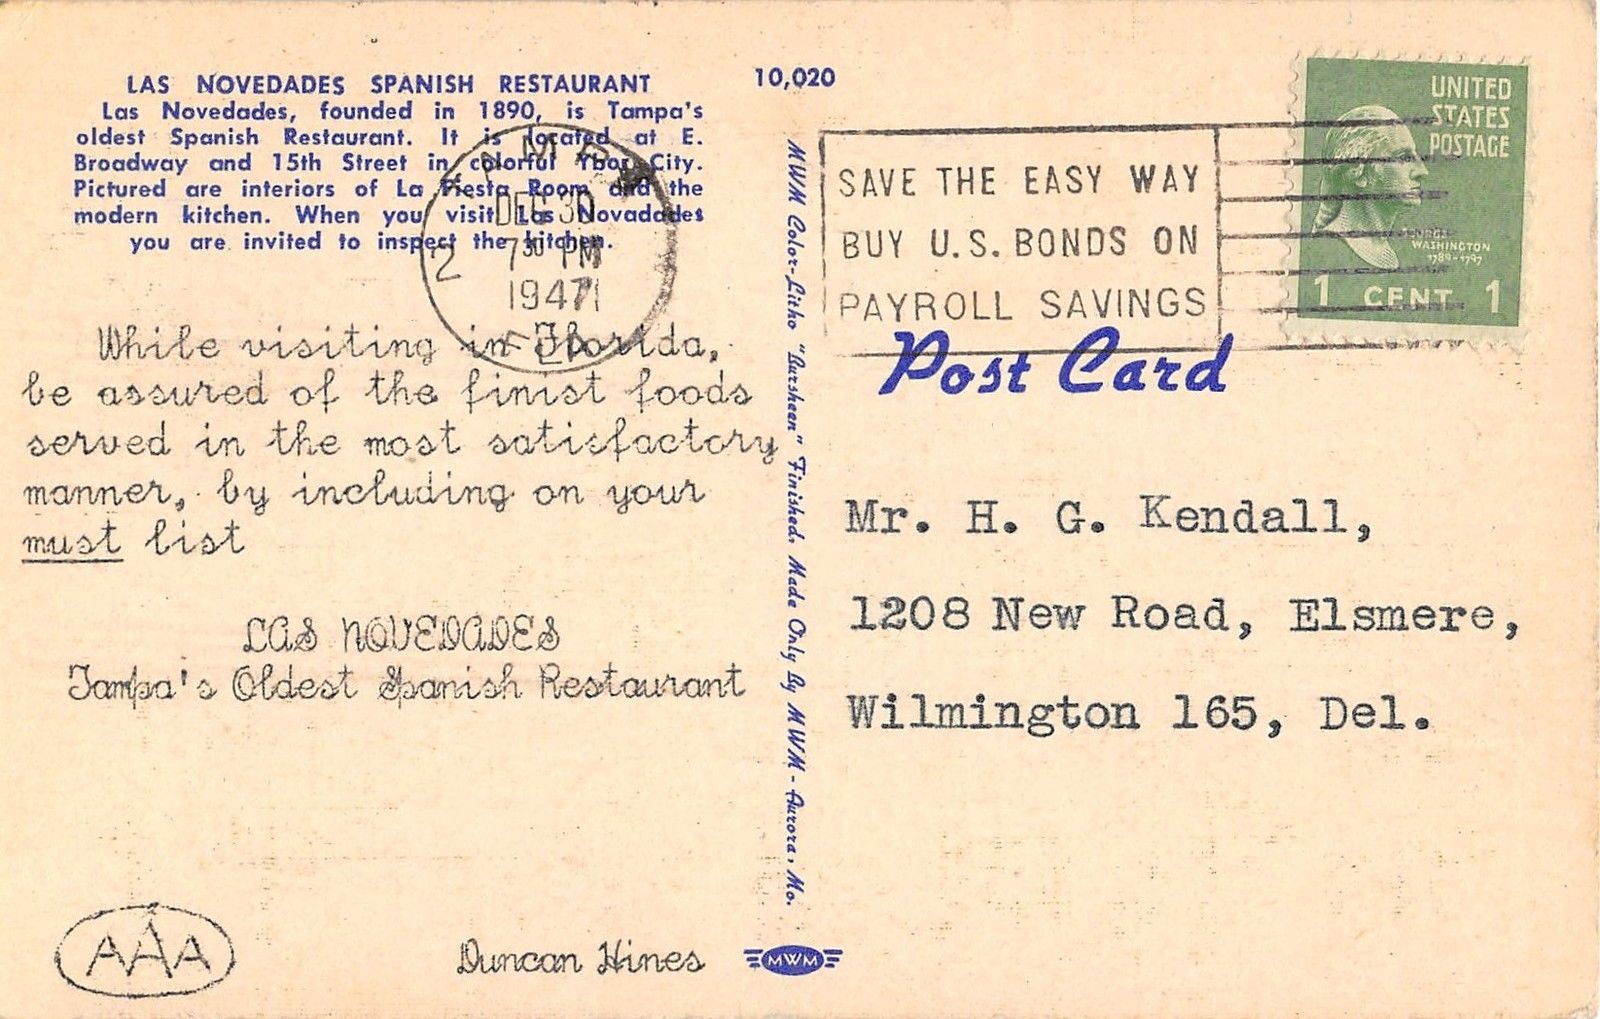 LAS NOVEDADES SPANISH RESTAURANT
Las Novedades, founded in 1890, is Tampa's
oldest Spanish Restaurant. It is located at E.
Broadway and 15th Street in colorful Ybor City.
Pictured are interiors of La Fiesta Room and the
modern kitchen. When you visit Las Novadades
you are invited to inspect the kitchen.
TAMPA
2
DEC 30
7 30 PM
1947
FLA
While visiting in Florida,
be assured of the finist foods
served in the most satisfactory
manner, by including on your
must list
LAS NOVEDADES
Tampa's Oldest Spanish Restaurant
AAA
Duncan Hines
10,020
MWM Color-Litho "Aursheen" Finished. Made Only By MWM - Aurora, Mo.
MWM
SAVE THE EASY WAY
BUY U.S. BONDS ON
PAYROLL SAVINGS
UNITED
STATES
POSTAGE
GEORGE
WASHINGTON
1789-1797
1 CENT 1
Post Card
Mr. H. G. Kendall,
1208 New Road, Elsmere,
Wilmington 165, Del.